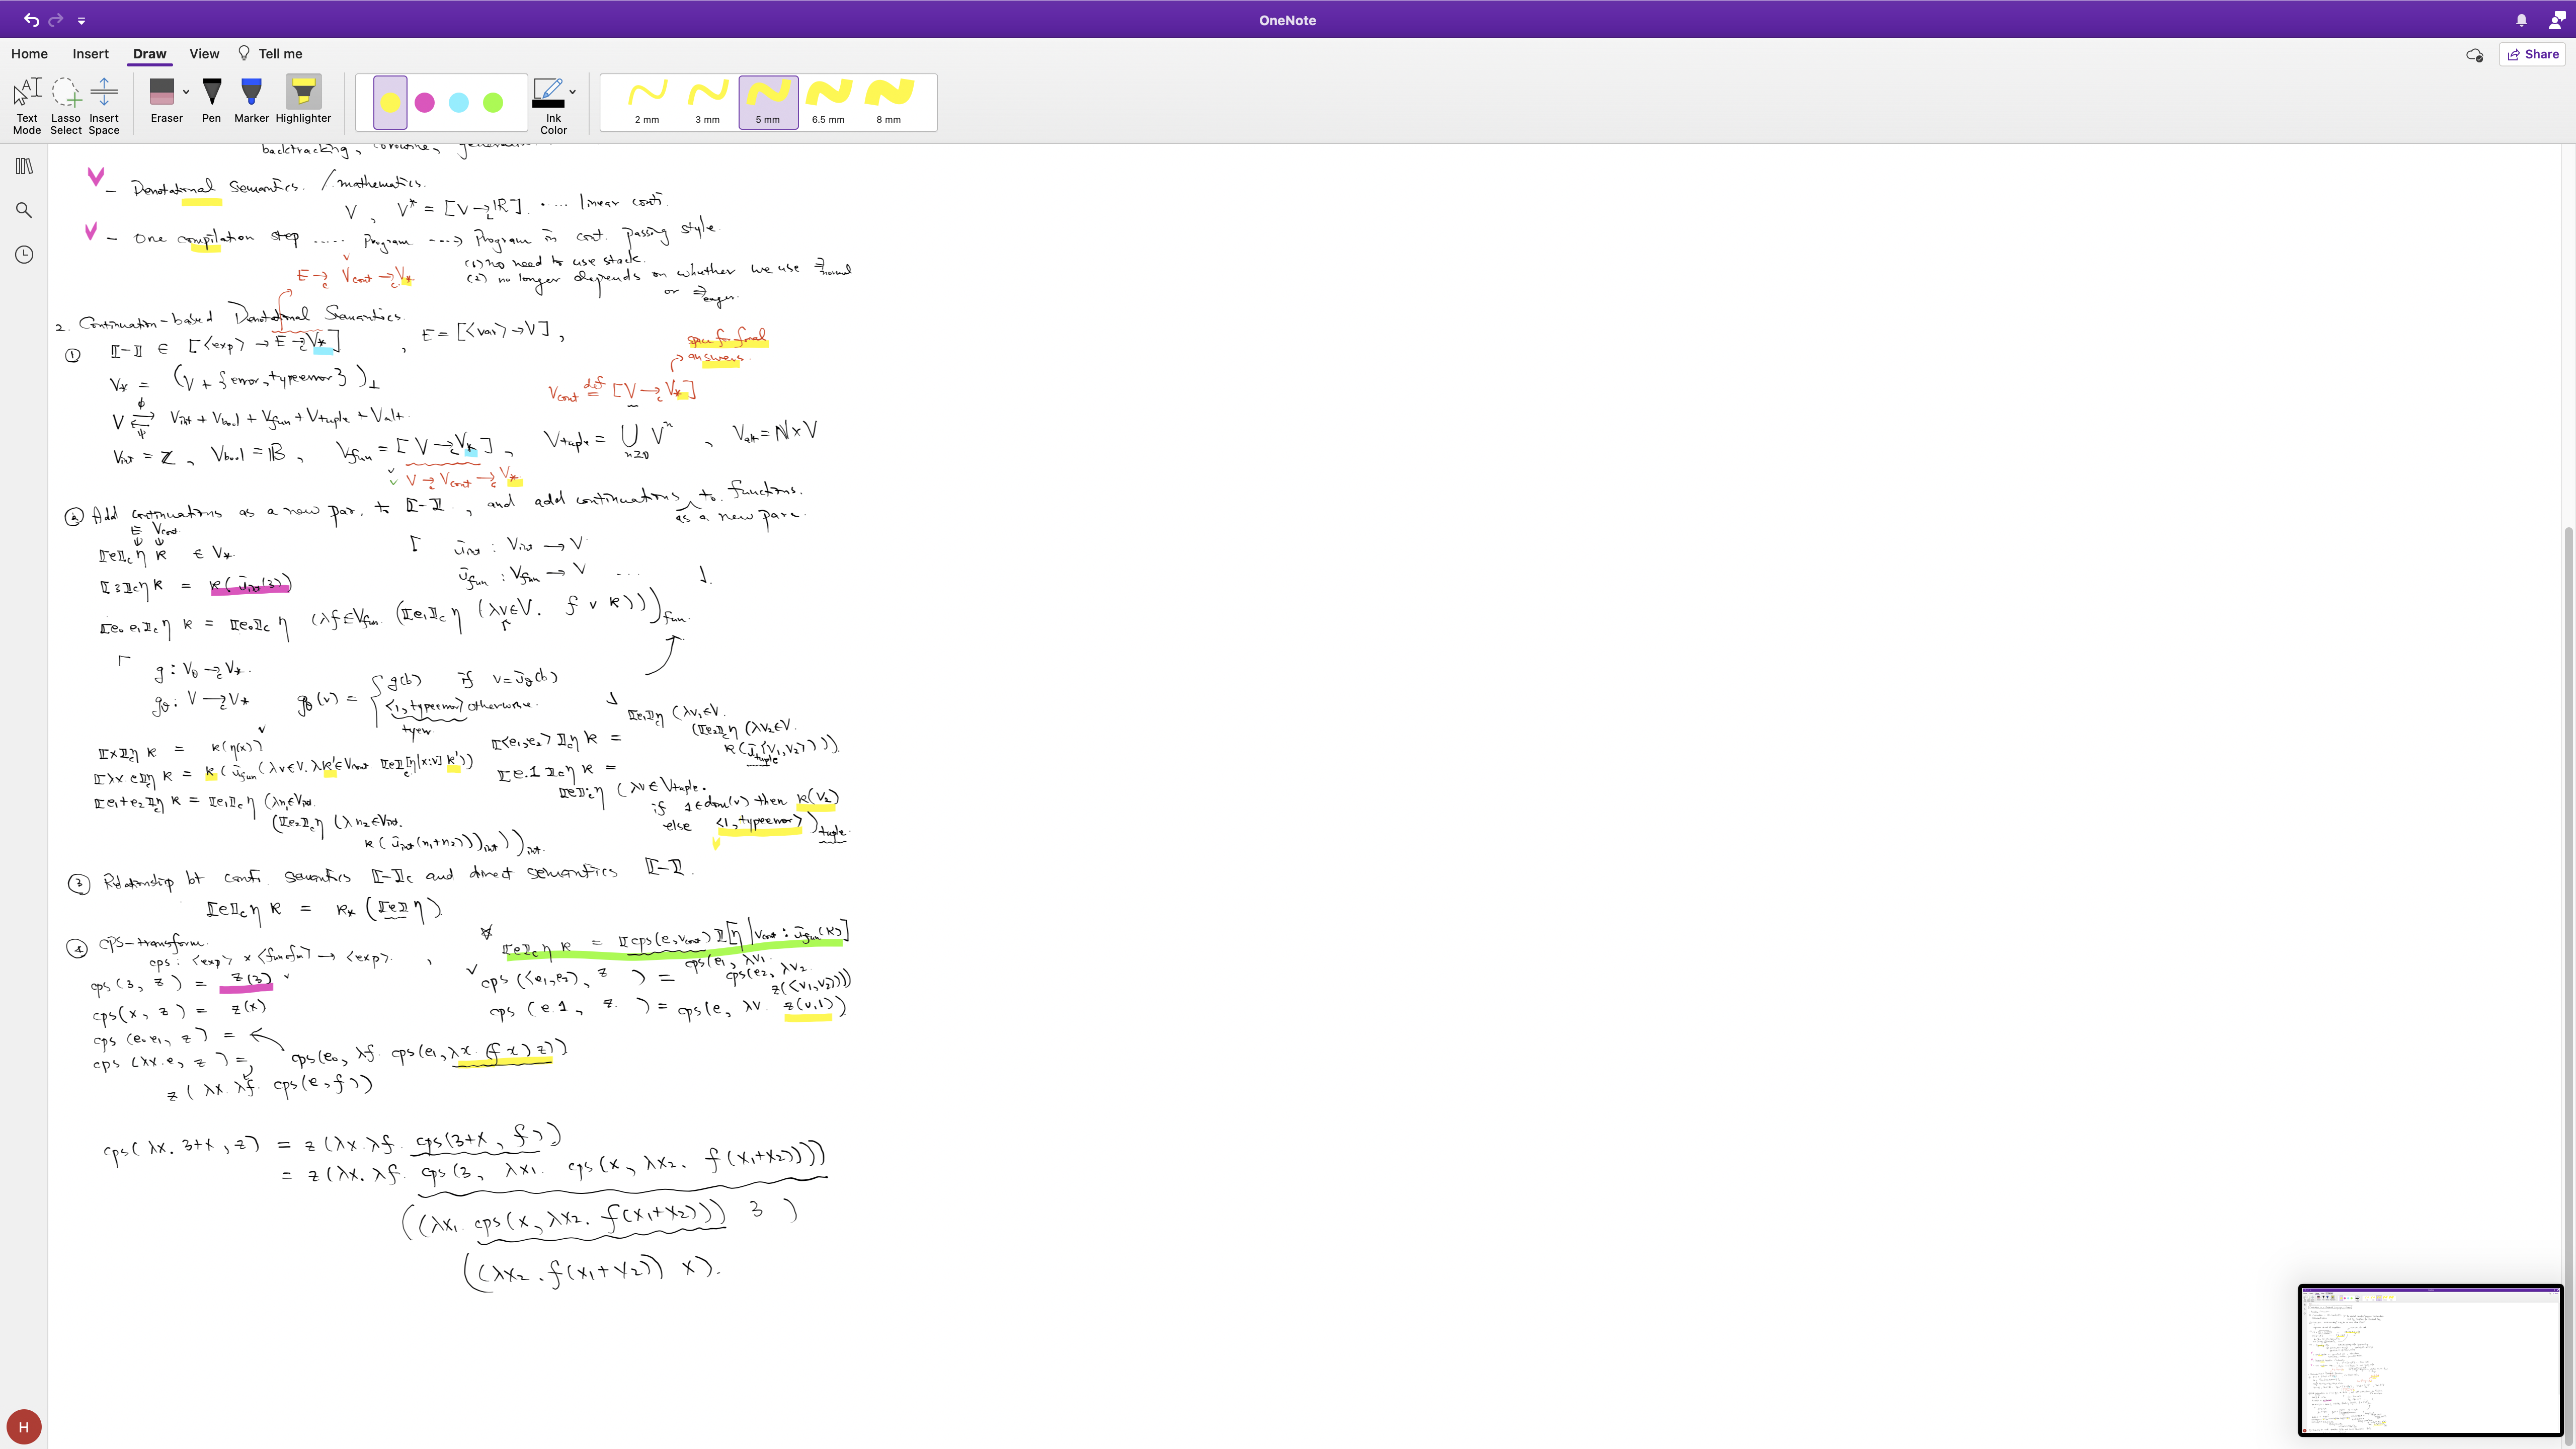 OneNote
Home Insert Draw View Tell me
Share
Text Mode
Lasso Select
Insert Space
Eraser
Pen
Marker
Highlighter
Ink Color
2 mm
3 mm
5 mm
6.5 mm
8 mm
backtracking, coroutine,
- Denotational Semantics. / mathematics.
V, V* = [V →c ℝ]. .... linear conti.
- One compilation step ..... Program ---> Program in cont. passing style.
(1) no need to use stack.
(2) no longer depends on whether we use ⇒normal
or ⇒eager.
E →c Vcont →c V*
2. Continuation-based Denotational Semantics.
① ⟦-⟧ ∈ [<exp> → E →c V*], E = [<var> → V],
space for final
answers.
V* = (V + {error, typeerror})⊥
Vcont def= [V →c V*]
V ⇄ Vint + Vbool + Vfun + Vtuple + Valt.
ϕ
ψ
Vint = ℤ, Vbool = 𝔹, Vfun = [V →c V*], Vtuple = ⋃n≥0 Vⁿ, Valt = ℕ×V
V →c Vcont →c V*
② Add continuations as a new par. to ⟦-⟧, and add continuations to functions.
as a new para.
E Vcont
⟦e⟧c η κ ∈ V*
ūint : Vint → V
ūfun : Vfun → V ...
⟦3⟧c η κ = κ(ūint(3))
⟦e0 e1⟧c η κ = ⟦e0⟧c η (λf∈Vfun. (⟦e1⟧c η (λv∈V. f v κ)))fun.
g : Vθ →c V*.
gθ : V →c V*
gθ(v) = { g(b) if v = ūθ(b)
<1, typeerror> otherwise.
tyerr
⟦x⟧c η κ = κ(η(x))
⟦λx.e⟧c η κ = κ(ūfun(λv∈V. λκ'∈Vcont. ⟦e⟧c[η|x:v] κ'))
⟦e1+e2⟧c η κ = ⟦e1⟧c η (λn1∈Vint.
(⟦e2⟧c η (λn2∈Vint.
κ(ūint(n1+n2)))int))int.
⟦<e1,e2>⟧c η κ =
⟦e1⟧c η (λv1∈V.
(⟦e2⟧c η (λv2∈V.
κ(ūtuple<v1,v2>)))).
⟦e.1⟧c η κ =
⟦e⟧c η (λv∈Vtuple.
if 1∈dom(v) then κ(v2)
else <1, typeerror>)tuple.
③ Relationship bt conti. semantics ⟦-⟧c and direct semantics ⟦-⟧.
⟦e⟧c η κ = κ* (⟦e⟧ η).
④ CPS-transform.
cps : <exp> × <funcfm> → <exp>.
☆ ⟦e⟧c η κ = ⟦cps(e, vcont)⟧[η | vcont : ūfun(κ)]
cps(3, z) = z(3)
cps(x, z) = z(x)
cps(e0e1, z) =
cps(e0, λf. cps(e1, λx. (f x) z))
cps(λx.e, z) =
z(λx. λf. cps(e, f))
cps(<e1,e2>, z) = cps(e1, λv1.
cps(e2, λv2.
z(<v1,v2>)))
cps(e.1, z.) = cps(e, λv. z(v.1))
cps(λx. 3+x, z) = z(λx.λf. cps(3+x, f))
= z(λx.λf. cps(3, λx1. cps(x, λx2. f(x1+x2))))
((λx1. cps(x, λx2. f(x1+x2))) 3)
((λx2. f(x1+x2)) x).
H